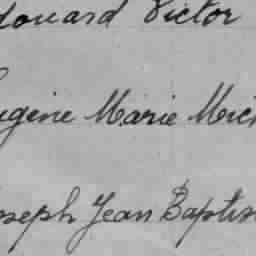 douard Victor
ugène Marie Mich
oseph Jean Baptis